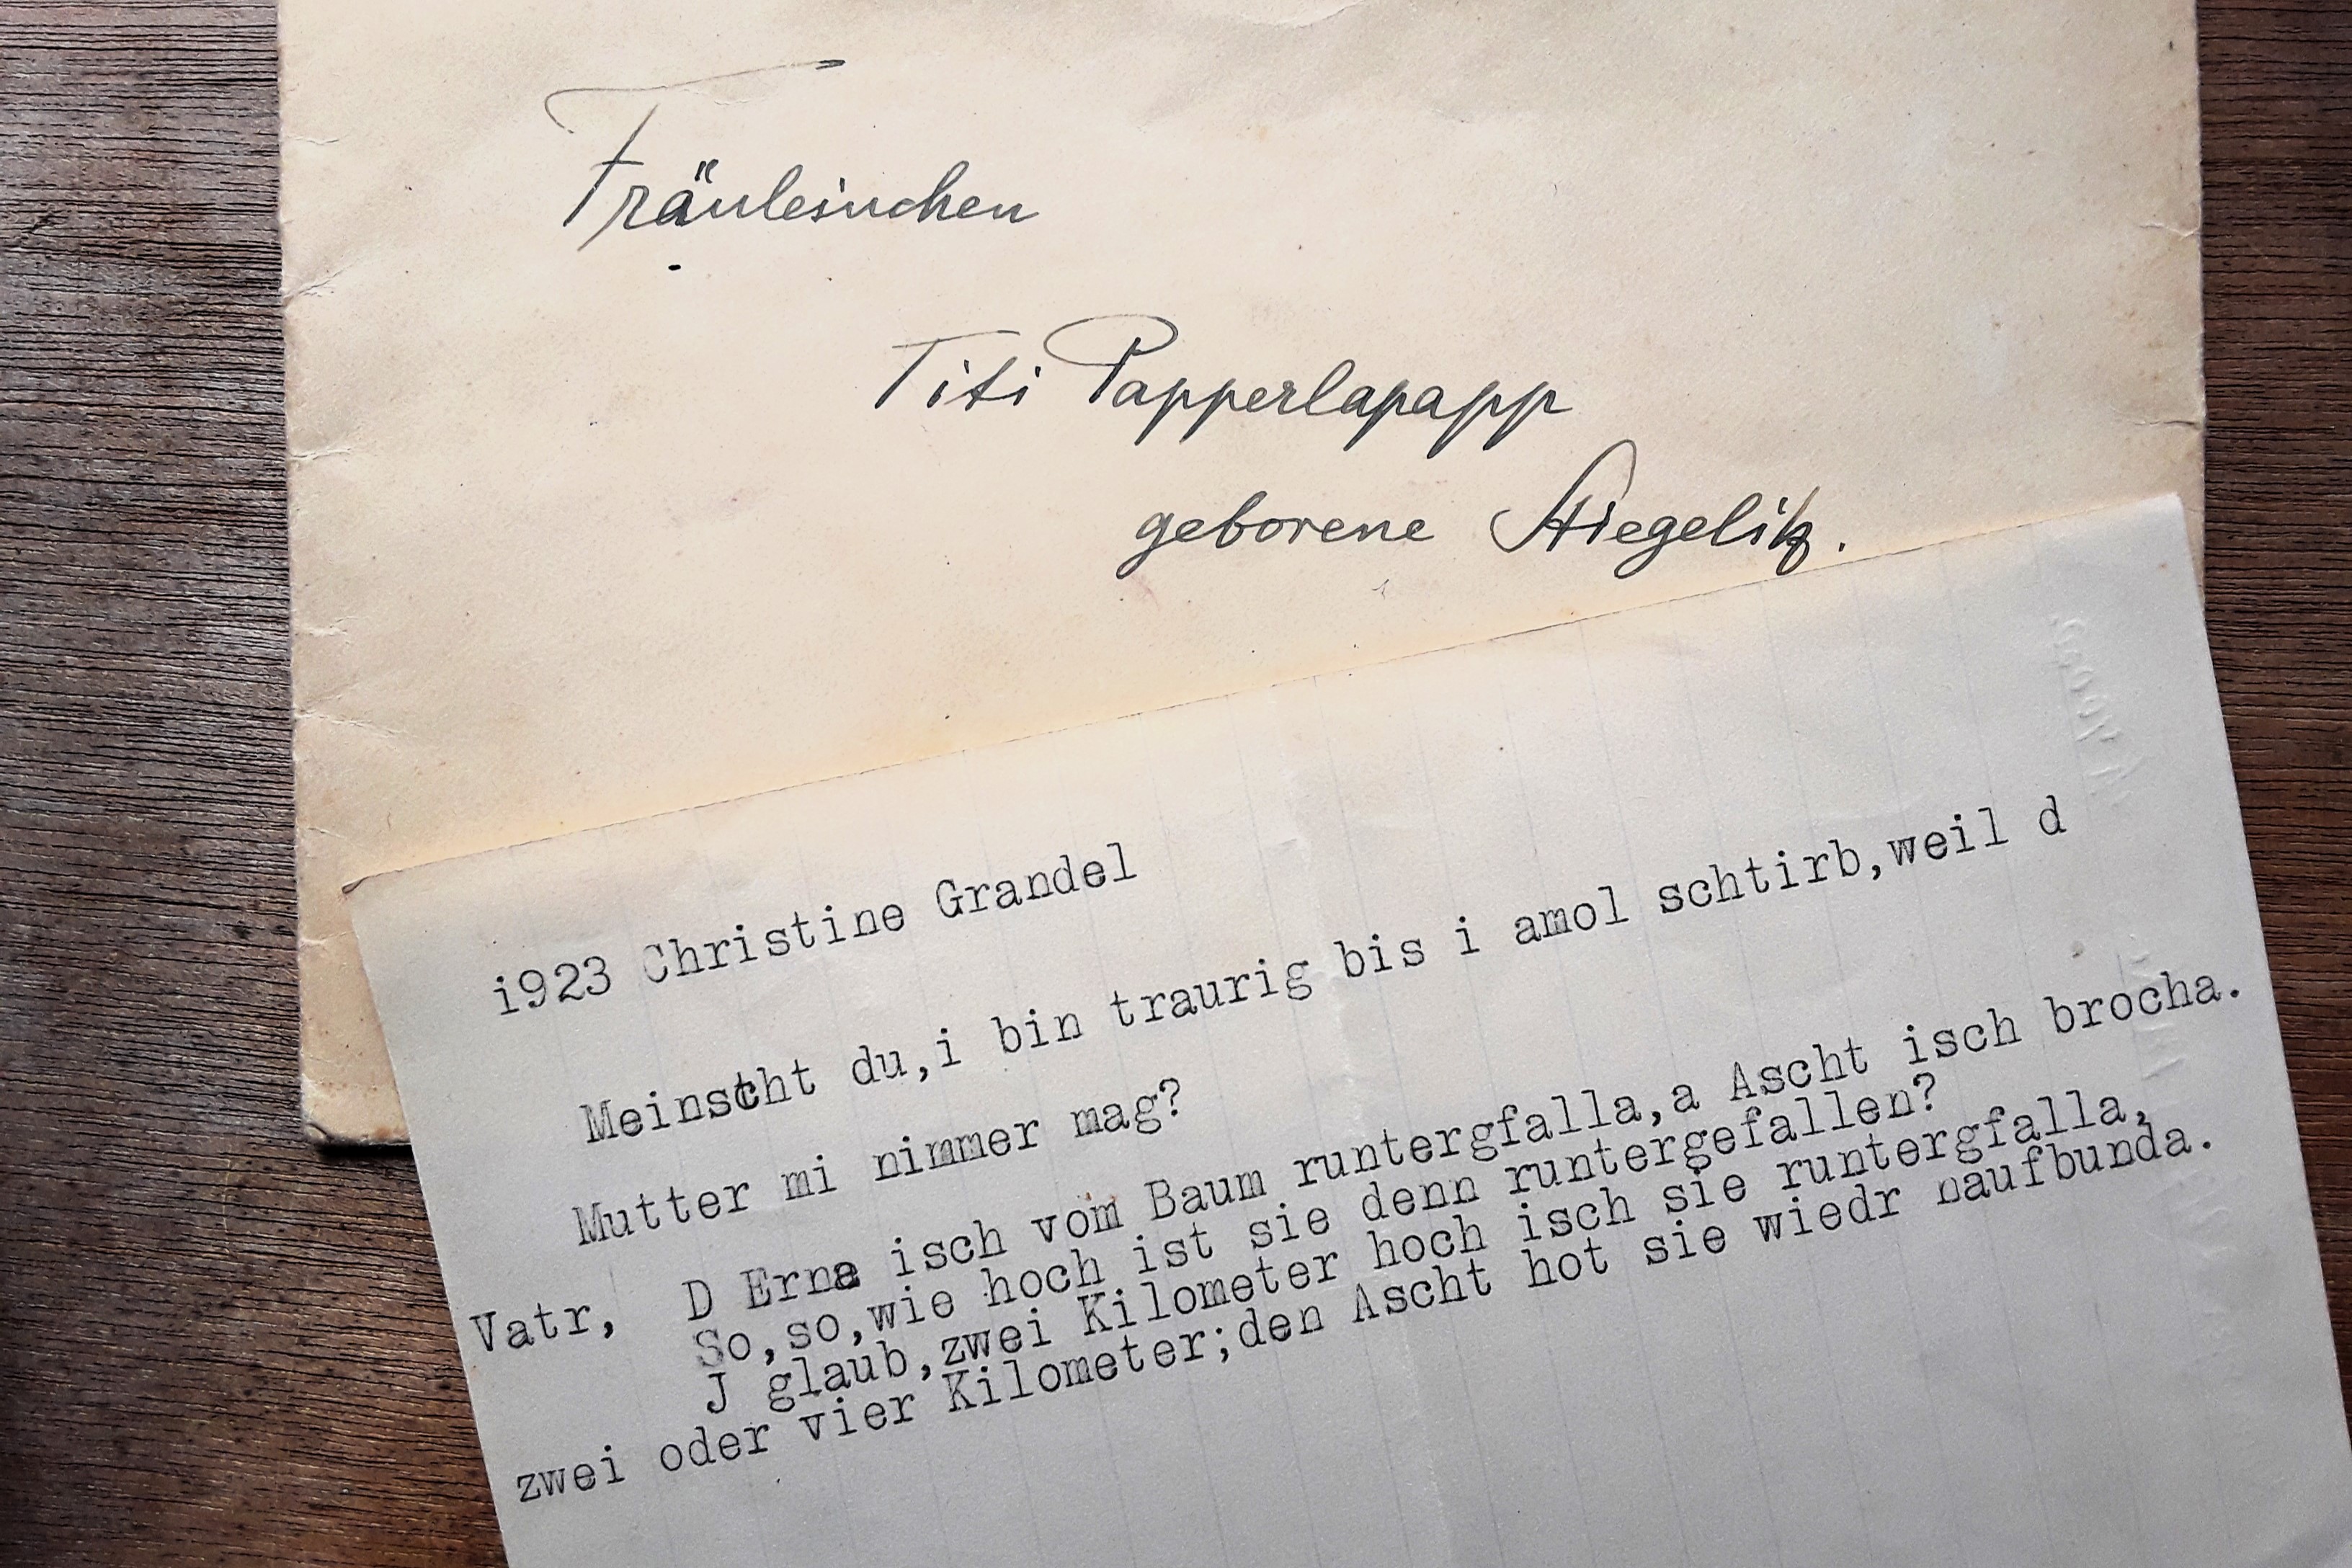 Fräuleinchen
Titi Papperlapapp
geborene Stiegelitz.
i923 Christine Grandel
Meinscht du,i bin traurig bis i amol schtirb,weil d
Mutter mi nimmer mag?
Vatr, D Erna isch vom Baum runtergfalla,a Ascht isch brocha.
So,so,wie hoch ist sie denn runtergefallen?
J glaub,zwei Kilometer hoch isch sie runtergfalla,
zwei oder vier Kilometer;den Ascht hot sie wiedr naufbunda.